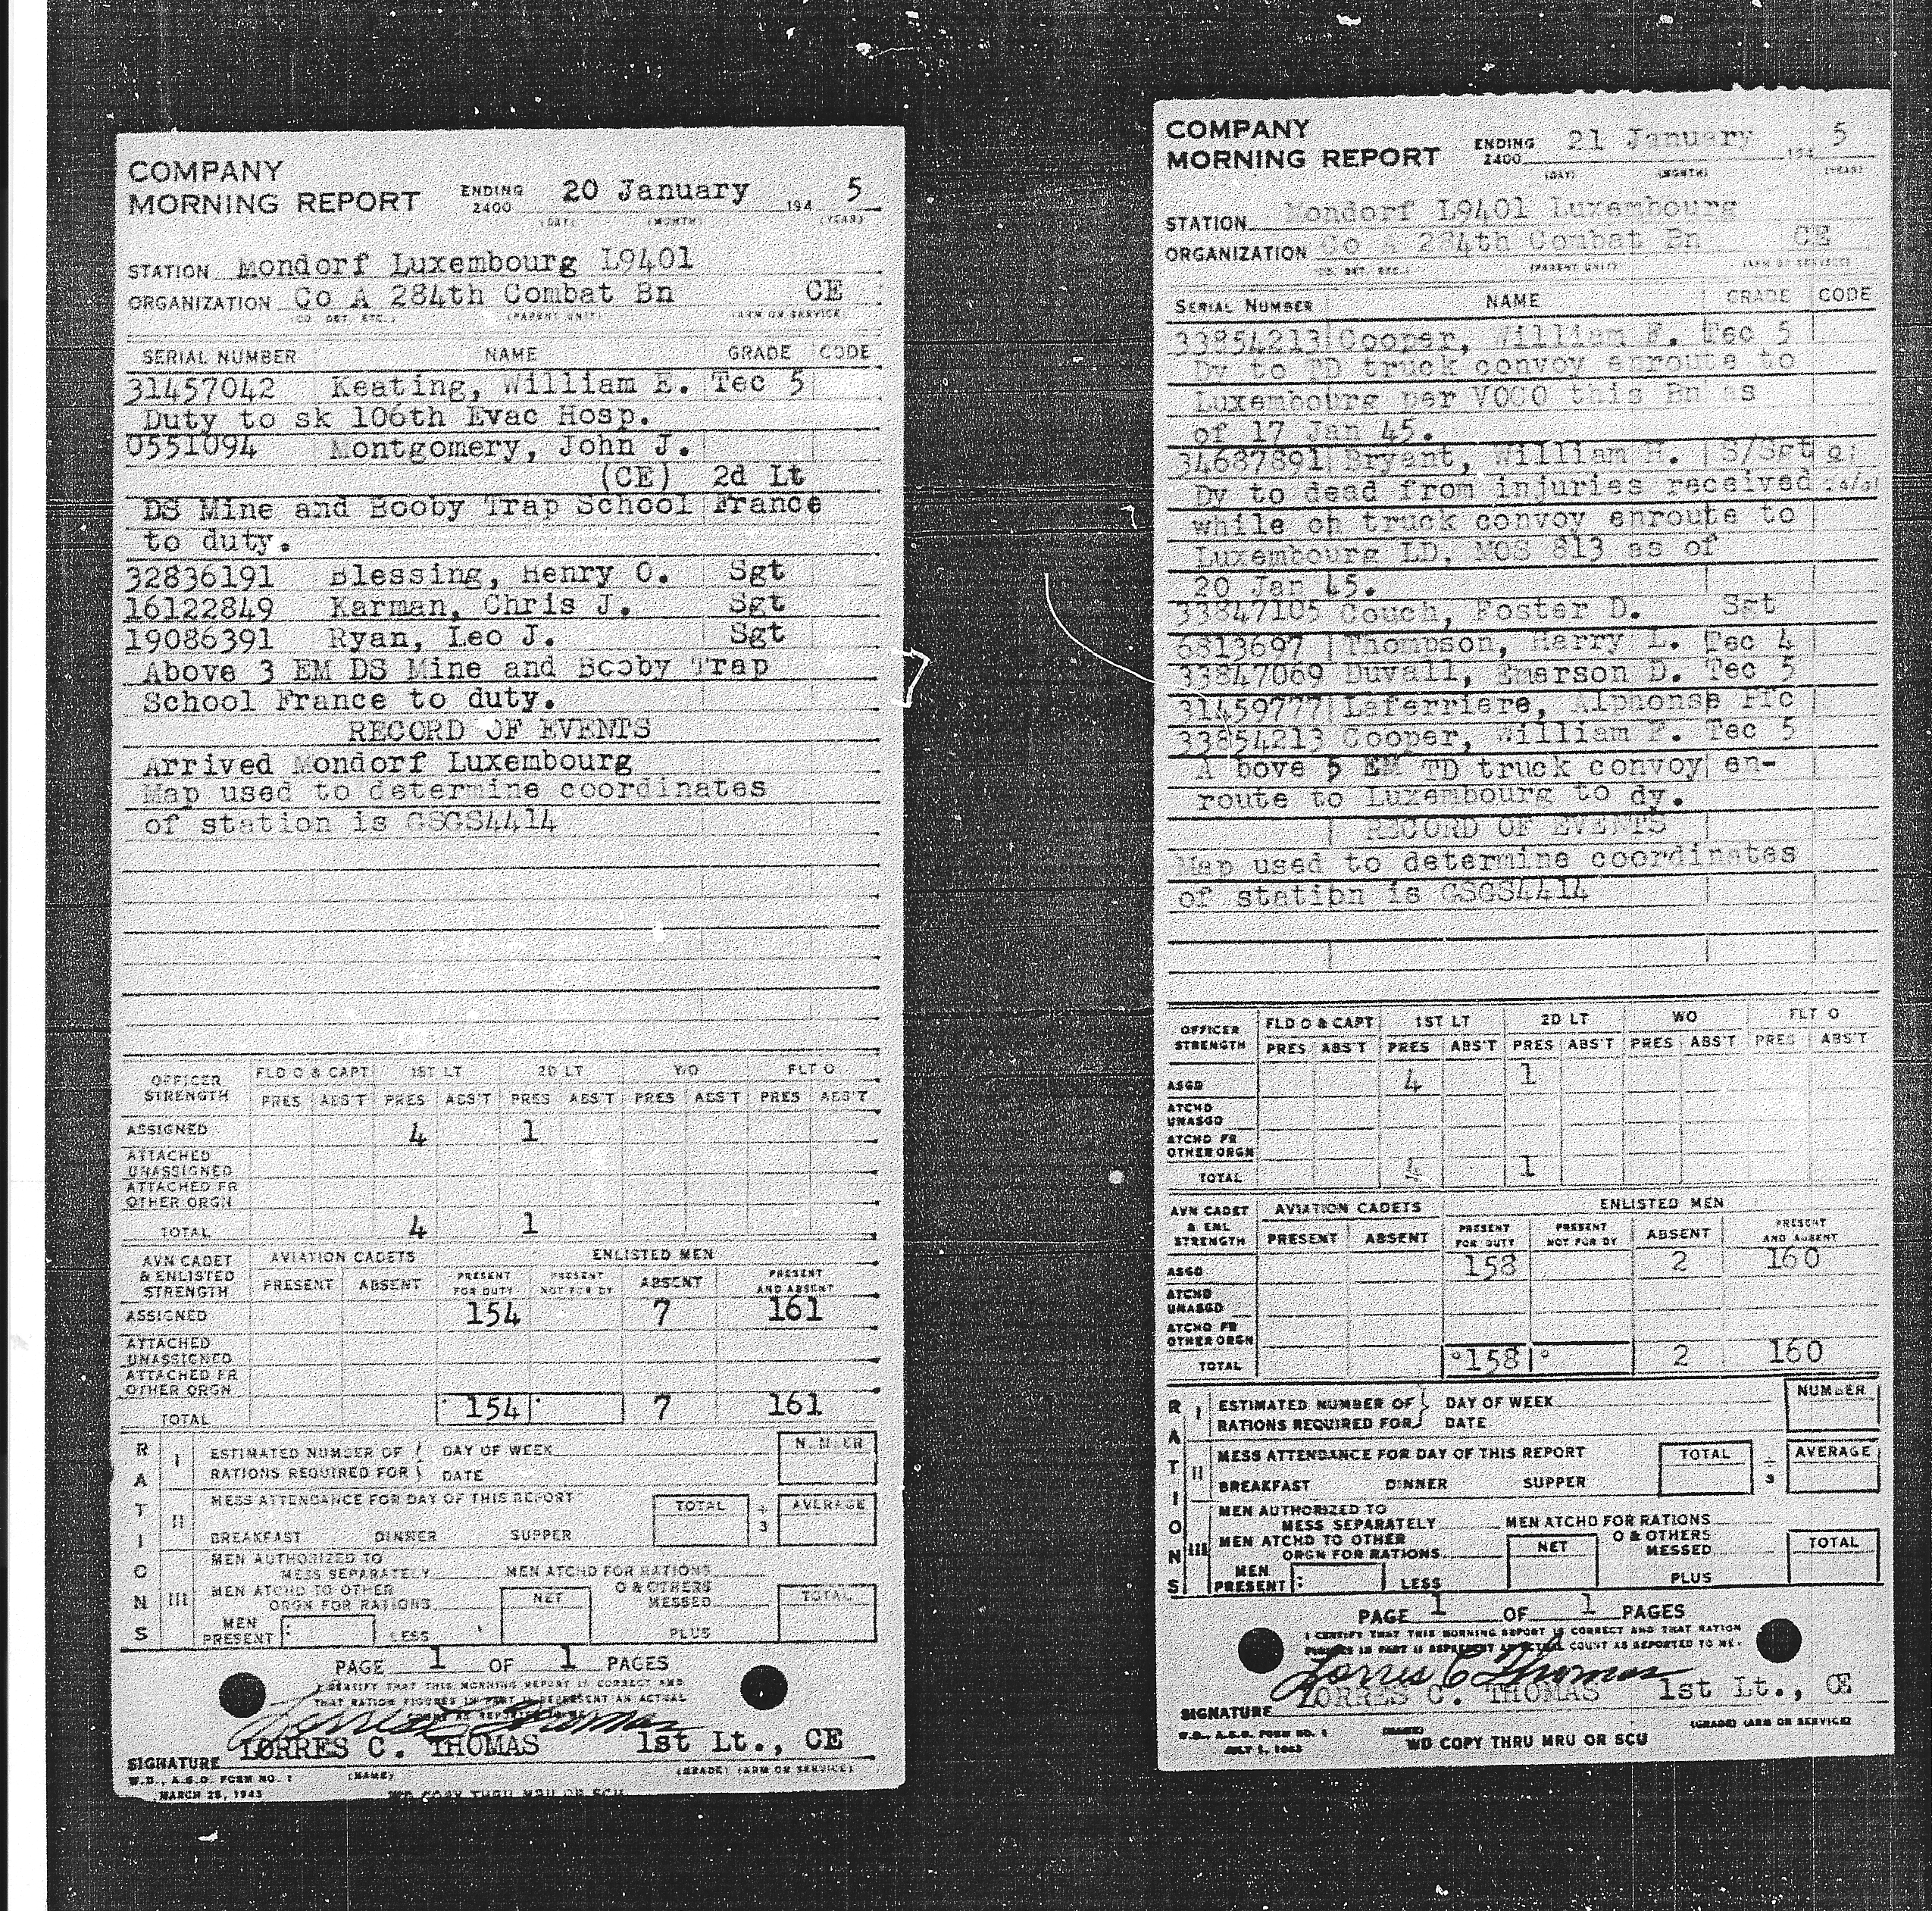 COMPANY
MORNING REPORT ENDING 2400 20 January 194 5
(DAY) (MONTH) (YEAR)
STATION Mondorf Luxembourg L9401
ORGANIZATION Co A 284th Combat Bn CE
(CO. DET. ETC.) (PARENT UNIT) (ARM OR SERVICE)
SERIAL NUMBER NAME GRADE CODE
31457042 Keating, William E. Tec 5
Duty to sk 106th Evac Hosp.
0551094 Montgomery, John J.
(CE) 2d Lt
DS Mine and Booby Trap School France
to duty.
32836191 Blessing, Henry O. Sgt
16122849 Karman, Chris J. Sgt
19086391 Ryan, Leo J. Sgt
Above 3 EM DS Mine and Booby Trap
School France to duty.
RECORD OF EVENTS
Arrived Mondorf Luxembourg
Map used to determine coordinates
of station is GSGS4414
OFFICER STRENGTH FLD O & CAPT 1ST LT 2D LT WO FLT O
PRES ABS'T PRES ABS'T PRES ABS'T PRES ABS'T PRES ABS'T
ASSIGNED 4 1
ATTACHED
UNASSIGNED
ATTACHED FR
OTHER ORGN
TOTAL 4 1
AVN CADET & ENLISTED STRENGTH AVIATION CADETS ENLISTED MEN
PRESENT ABSENT PRESENT FOR DUTY PRESENT NOT FOR DY ABSENT PRESENT AND ABSENT
ASSIGNED 154 7 161
ATTACHED
UNASSIGNED
ATTACHED FR
OTHER ORGN
TOTAL 154 7 161
RATIONS
I ESTIMATED NUMBER OF DAY OF WEEK NUMBER
RATIONS REQUIRED FOR DATE
II MESS ATTENDANCE FOR DAY OF THIS REPORT TOTAL ÷ 3 AVERAGE
BREAKFAST DINNER SUPPER
III MEN AUTHORIZED TO
MESS SEPARATELY MEN ATCHD FOR RATIONS
MEN ATCHD TO OTHER O & OTHERS
ORGN FOR RATIONS NET MESSED TOTAL
MEN PRESENT: LESS PLUS
PAGE 1 OF 1 PAGES
I CERTIFY THAT THIS MORNING REPORT IS CORRECT AND
THAT RATION FIGURES IN PART II REPRESENT AN ACTUAL
COUNT AS REPORTED TO ME.
LORRES C. THOMAS 1st Lt., CE
SIGNATURE
(NAME) (GRADE) (ARM OR SERVICE)
W.D., A.G.O. FORM NO. 1
MARCH 25, 1943 WD COPY THRU MRU OR SCU
COMPANY
MORNING REPORT ENDING 2400 21 January 194 5
(DAY) (MONTH) (YEAR)
STATION Mondorf L9401 Luxembourg
ORGANIZATION Co A 284th Combat Bn CE
(CO. DET. ETC.) (PARENT UNIT) (ARM OR SERVICE)
SERIAL NUMBER NAME GRADE CODE
33854213 Cooper, William F. Tec 5
Dy to TD truck convoy enroute to
Luxembourg per VOCO this Bn as
of 17 Jan 45.
34687891 Bryant, William H. S/Sgt
Dy to dead from injuries received
while on truck convoy enroute to
Luxembourg LD. MOS 813 as of
20 Jan 45.
33847105 Couch, Foster D. Sgt
6813697 Thompson, Harry L. Tec 4
33847069 Duvall, Emerson D. Tec 5
31459777 Laferriere, Alphonse Pfc
33854213 Cooper, William F. Tec 5
A bove 5 EM TD truck convoy en-
route to Luxembourg to dy.
RECORD OF EVENTS
Map used to determine coordinates
of station is GSGS4414
OFFICER STRENGTH FLD O & CAPT 1ST LT 2D LT WO FLT O
PRES ABS'T PRES ABS'T PRES ABS'T PRES ABS'T PRES ABS'T
ASGD 4 1
ATCHD
UNASGD
ATCHD FR
OTHER ORGN
TOTAL 4 1
AVN CADET & ENL STRENGTH AVIATION CADETS ENLISTED MEN
PRESENT ABSENT PRESENT FOR DUTY PRESENT NOT FOR DY ABSENT PRESENT AND ABSENT
ASGD 158 2 160
ATCHD
UNASGD
ATCHD FR
OTHER ORGN
TOTAL 158 2 160
RATIONS
I ESTIMATED NUMBER OF DAY OF WEEK NUMBER
RATIONS REQUIRED FOR DATE
II MESS ATTENDANCE FOR DAY OF THIS REPORT TOTAL ÷ 3 AVERAGE
BREAKFAST DINNER SUPPER
III MEN AUTHORIZED TO
MESS SEPARATELY MEN ATCHD FOR RATIONS
MEN ATCHD TO OTHER O & OTHERS
ORGN FOR RATIONS NET MESSED TOTAL
MEN PRESENT: LESS PLUS
PAGE 1 OF 1 PAGES
I CERTIFY THAT THIS MORNING REPORT IS CORRECT AND THAT RATION
FIGURES IN PART II REPRESENT AN ACTUAL COUNT AS REPORTED TO ME.
Lorres C Thomas
LORRES C. THOMAS 1st Lt., CE
SIGNATURE
(NAME) (GRADE) (ARM OR SERVICE)
W.D., A.G.O. FORM NO. 1
JULY 1, 1943 WD COPY THRU MRU OR SCU